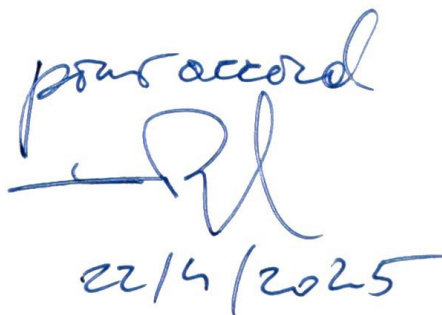 pour accord
22/4/2025